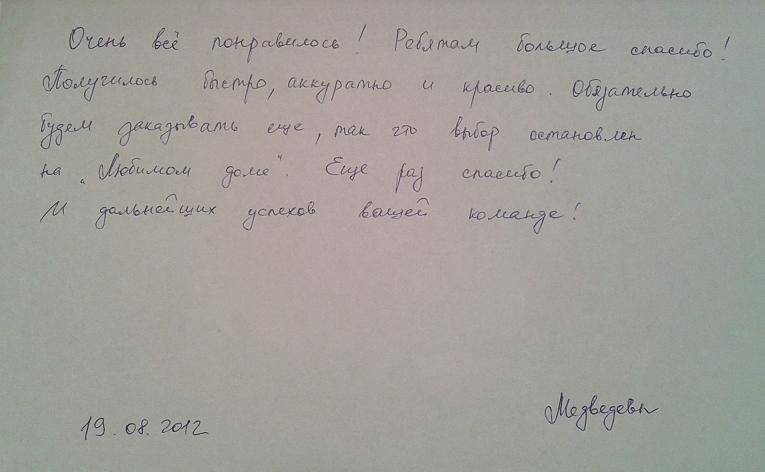 Очень всё понравилось! Ребятам большое спасибо!
Получилось быстро, аккуратно и красиво. Обязательно
будем заказывать еще, так что выбор остановлен
на „Любимом доме". Еще раз спасибо!
И дальнейших успехов вашей команде!
Медведевы
19.08.2012